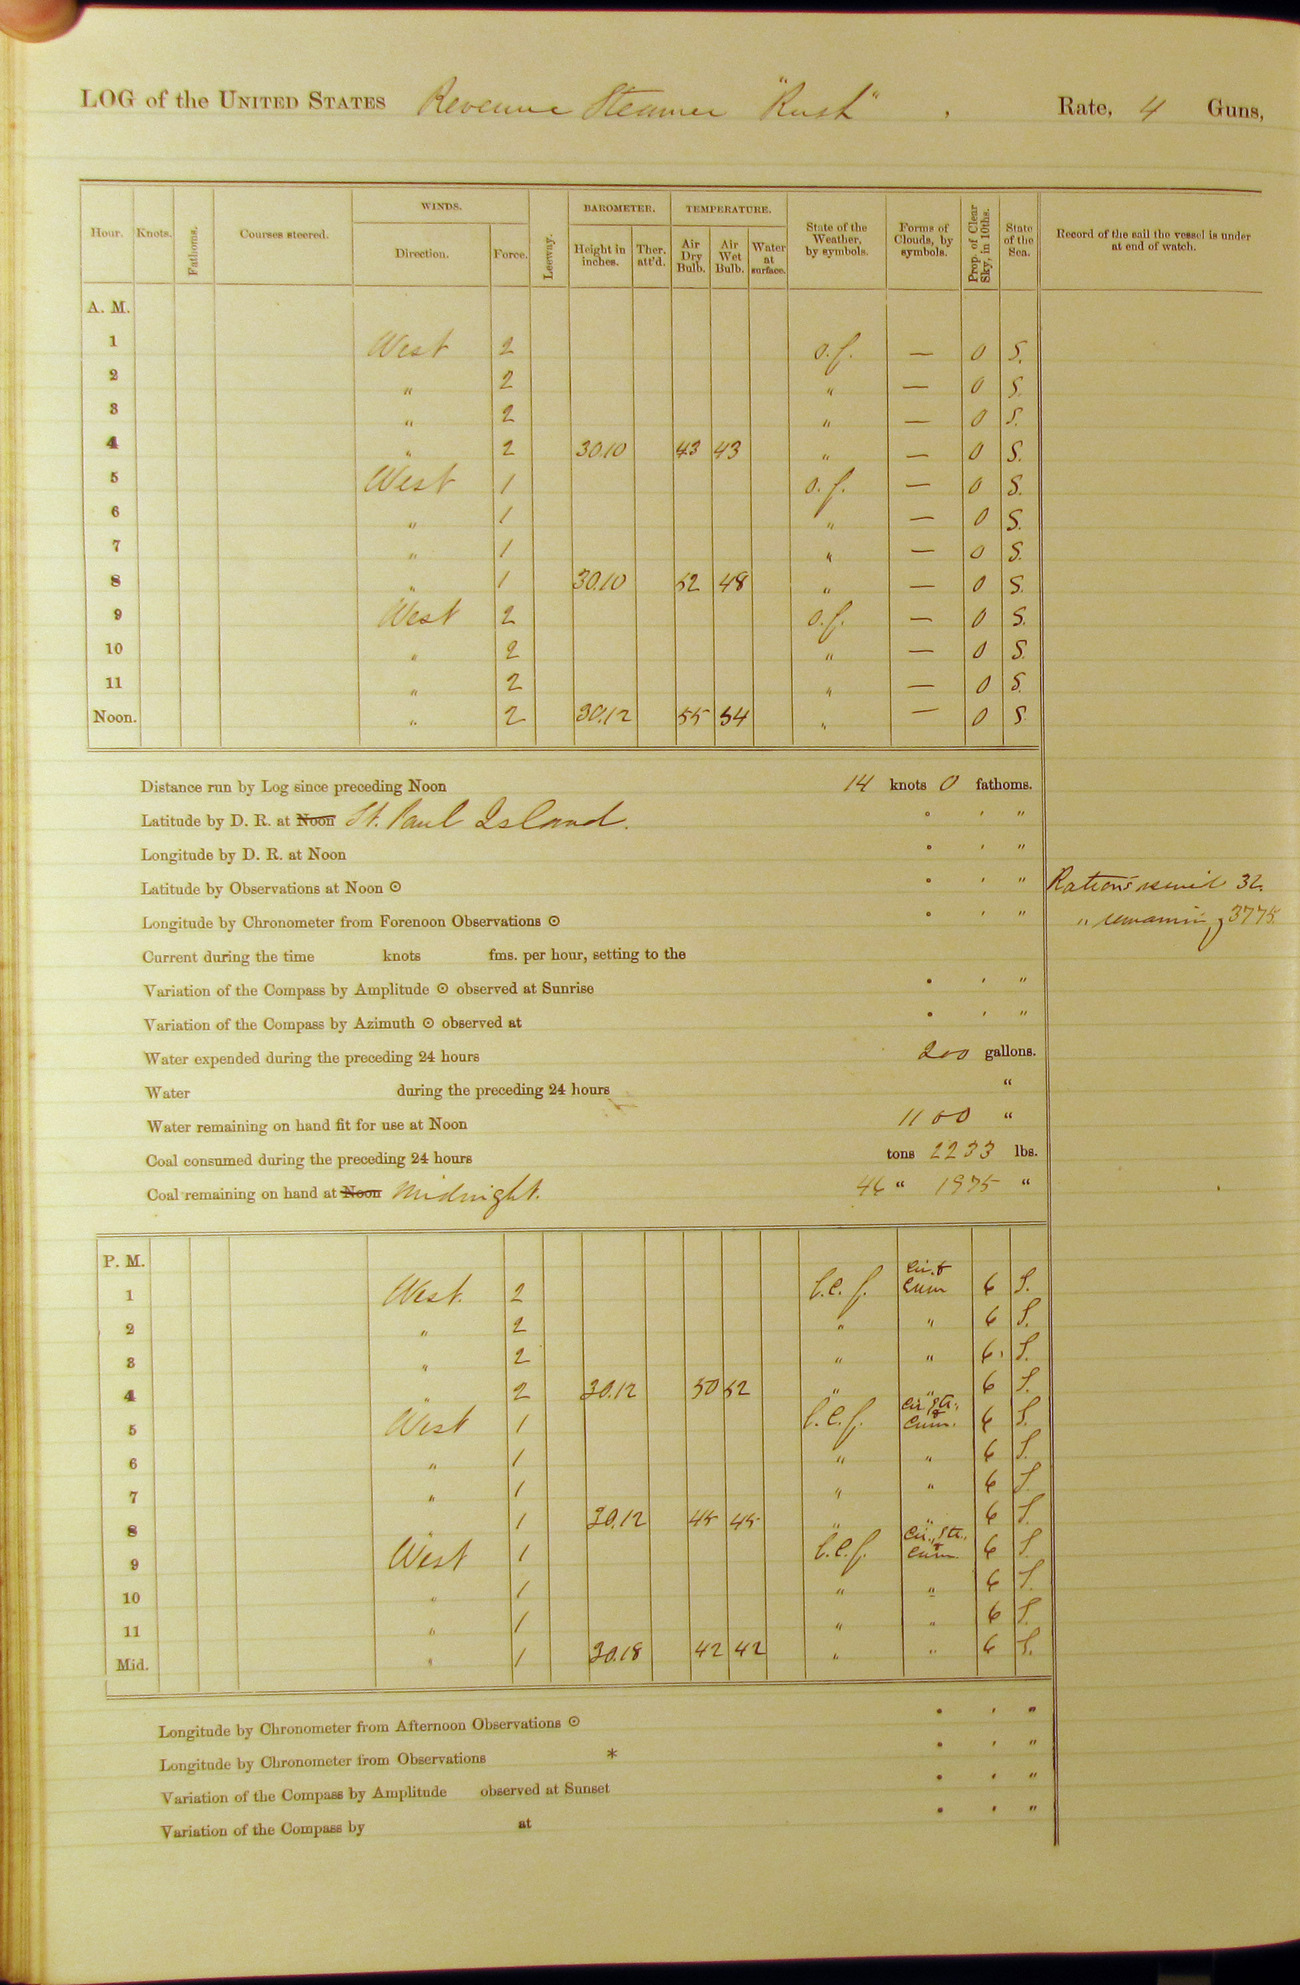 LOG of the UNITED STATES Revenue Steamer "Rush", Rate, 4 Guns,
WINDS. BAROMETER. TEMPERATURE.
Hour. Knots. Fathoms. Courses steered. Direction. Force. Leeway. Height in inches. Ther. att'd. Air Dry Bulb. Air Wet Bulb. Water at surface. State of the Weather, by symbols. Forms of Clouds, by symbols. Prop. of Clear Sky, in 10ths. State of the Sea. Record of the sail the vessel is under at end of watch.
A. M.
1 West 2 o.f. — 0 S.
2 " 2 " — 0 S.
3 " 2 " — 0 S.
4 " 2 30.10 43 43 " — 0 S.
5 West 1 o.f. — 0 S.
6 " 1 " — 0 S.
7 " 1 " — 0 S.
8 " 1 30.10 52 48 " — 0 S.
9 West 2 o.f. — 0 S.
10 " 2 " — 0 S.
11 " 2 " — 0 S.
Noon. " 2 30.12 55 54 " — 0 S.
Distance run by Log since preceding Noon 14 knots 0 fathoms.
Latitude by D. R. at Noon St. Paul Island. ° ' "
Longitude by D. R. at Noon ° ' "
Latitude by Observations at Noon ☉ ° ' " Rations 32.
Longitude by Chronometer from Forenoon Observations ☉ ° ' " " remaining 3775.
Current during the time knots fms. per hour, setting to the
Variation of the Compass by Amplitude ☉ observed at Sunrise ° ' "
Variation of the Compass by Azimuth ☉ observed at ° ' "
Water expended during the preceding 24 hours 200 gallons.
Water during the preceding 24 hours "
Water remaining on hand fit for use at Noon 1100 "
Coal consumed during the preceding 24 hours tons 2233 lbs.
Coal remaining on hand at Noon Midnight. 46 " 1975 "
P. M.
1 West. 2 b.c.f. Cir. & Cum 6 S.
2 " 2 " " 6 S.
3 " 2 " " 6 S.
4 " 2 30.12 50 52 " " 6 S.
5 West 1 b.c.f. Cir. Str. & Cum. 6 S.
6 " 1 " " 6 S.
7 " 1 " " 6 S.
8 " 1 30.12 45 45 " " 6 S.
9 West 1 b.c.f. Cir. Str. & Cum. 6 S.
10 " 1 " " 6 S.
11 " 1 " " 6 S.
Mid. " 1 30.18 42 42 " " 6 S.
Longitude by Chronometer from Afternoon Observations ☉ ° ' "
Longitude by Chronometer from Observations * ° ' "
Variation of the Compass by Amplitude observed at Sunset ° ' "
Variation of the Compass by at ° ' "